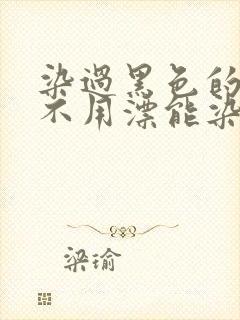 染过黑色的
不用漂能染
梁瑜